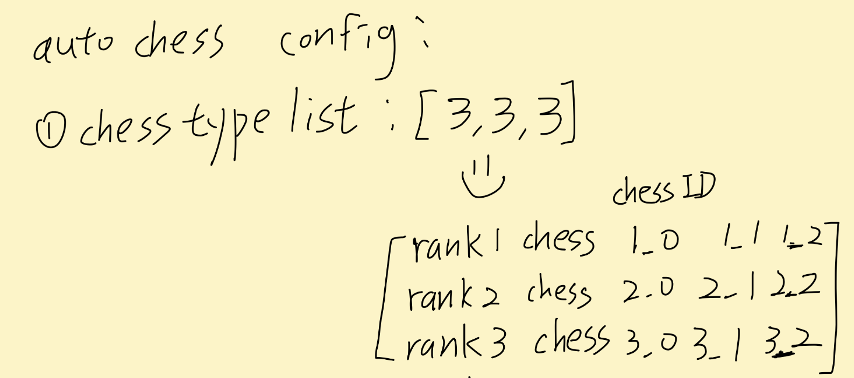 auto chess config:
① chess type list : [3,3,3]
chess ID
rank 1 chess 1_0 1_1 1_2
rank 2 chess 2.0 2_1 2_2
rank 3 chess 3_0 3_1 3_2